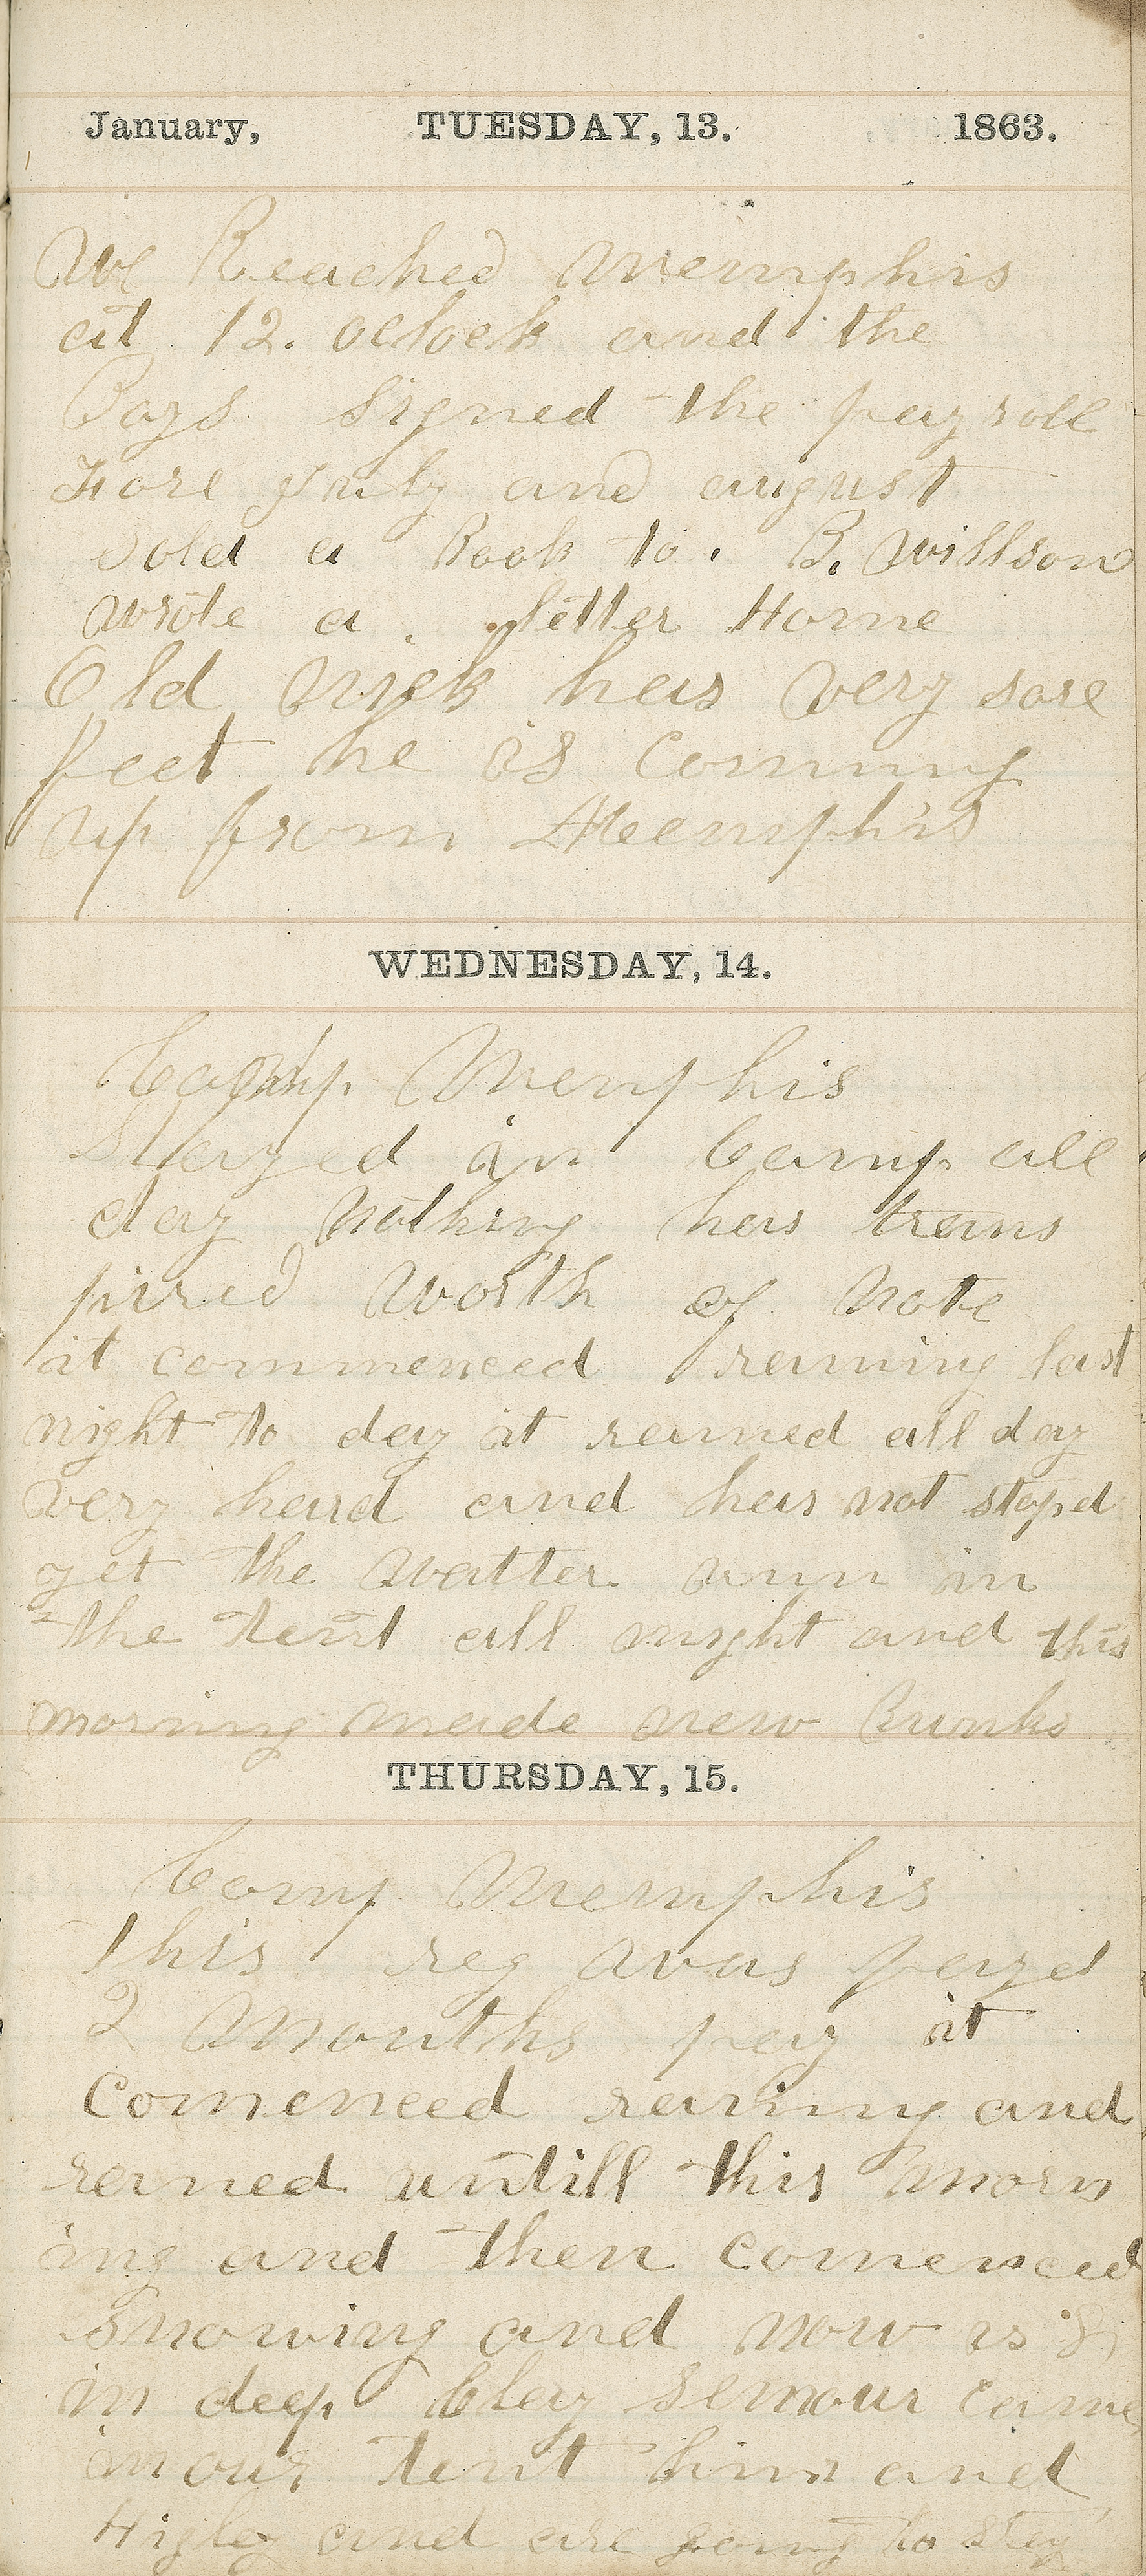 January, TUESDAY, 13. 1863.
We Reached Memphis
at 12. oclock and the
Boys Signed the pay roll
Fore july and august
Sold a Book to. B. Willson
wrote a. letter Home
Old nick has very sore
feet he is Comming
up from Memphis
WEDNESDAY, 14.
Camp Memphis
Stayed in Camp all
day Nothing has trans
pired Worth of Note
it commenced raining last
night to day it rained all day
very hard and has not stoped
yet the Watter run in
the tent all night and this
morning made new Bunks
THURSDAY, 15.
Camp Memphis
This reg was payed
2 Months pay it
Comenced raining and
rained untill this morn
ing and then comenced
snowing and now is 8
in deep Clay Semour came
in our tent him and
Higley and are going to stay